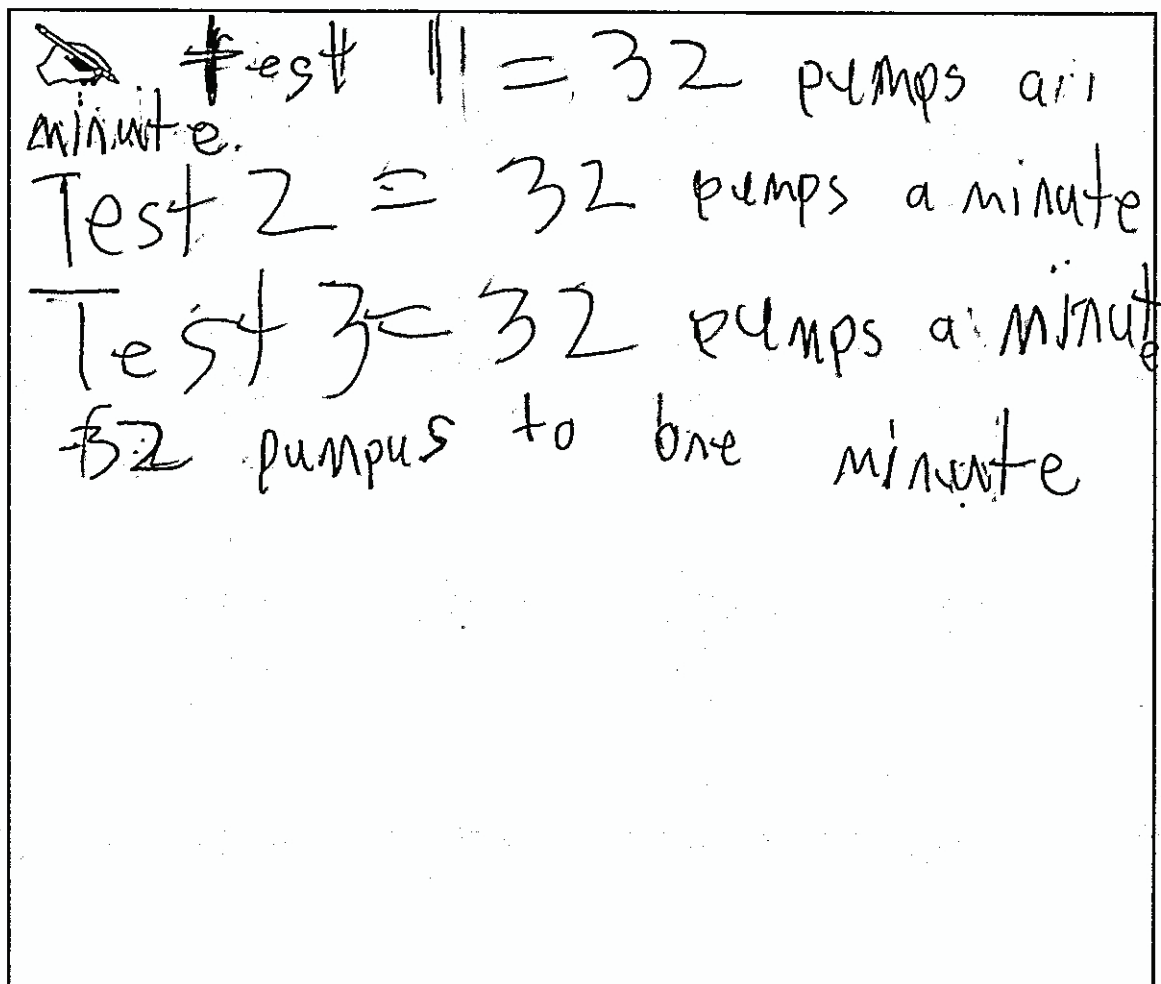 test 1 = 32 pumps a
minute.
Test 2 = 32 pumps a minute
Test 3 = 32 pumps a minute
32 pumpus to one minute